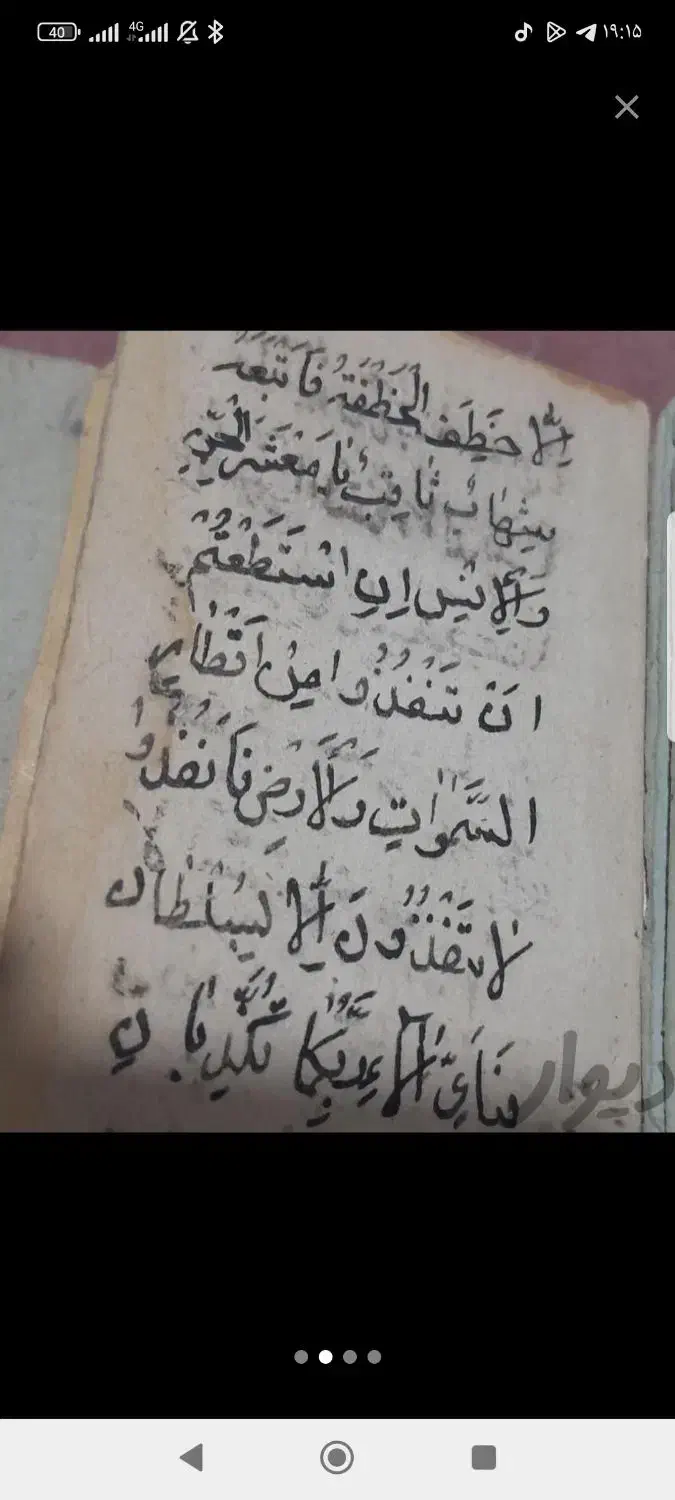 40
4G
۱۹:۱۵
اِلَّا خَطِفَ الْخَطْفَةَ فَاَتْبَعَهُ
شِهَابٌ ثَاقِبٌ يَا مَعْشَرَ الْجِنِّ
وَالْاِنْسِ اِنِ اسْتَطَعْتُمْ
اَنْ تَنْفُذُوا مِنْ اَقْطَارِ
السَّمٰوَاتِ وَالْاَرْضِ فَانْفُذُوا
لَا تَنْفُذُونَ اِلَّا بِسُلْطَانٍ
فَبِاَيِّ آلَاءِ رَبِّكُمَا تُكَذِّبَانِ
دیوار